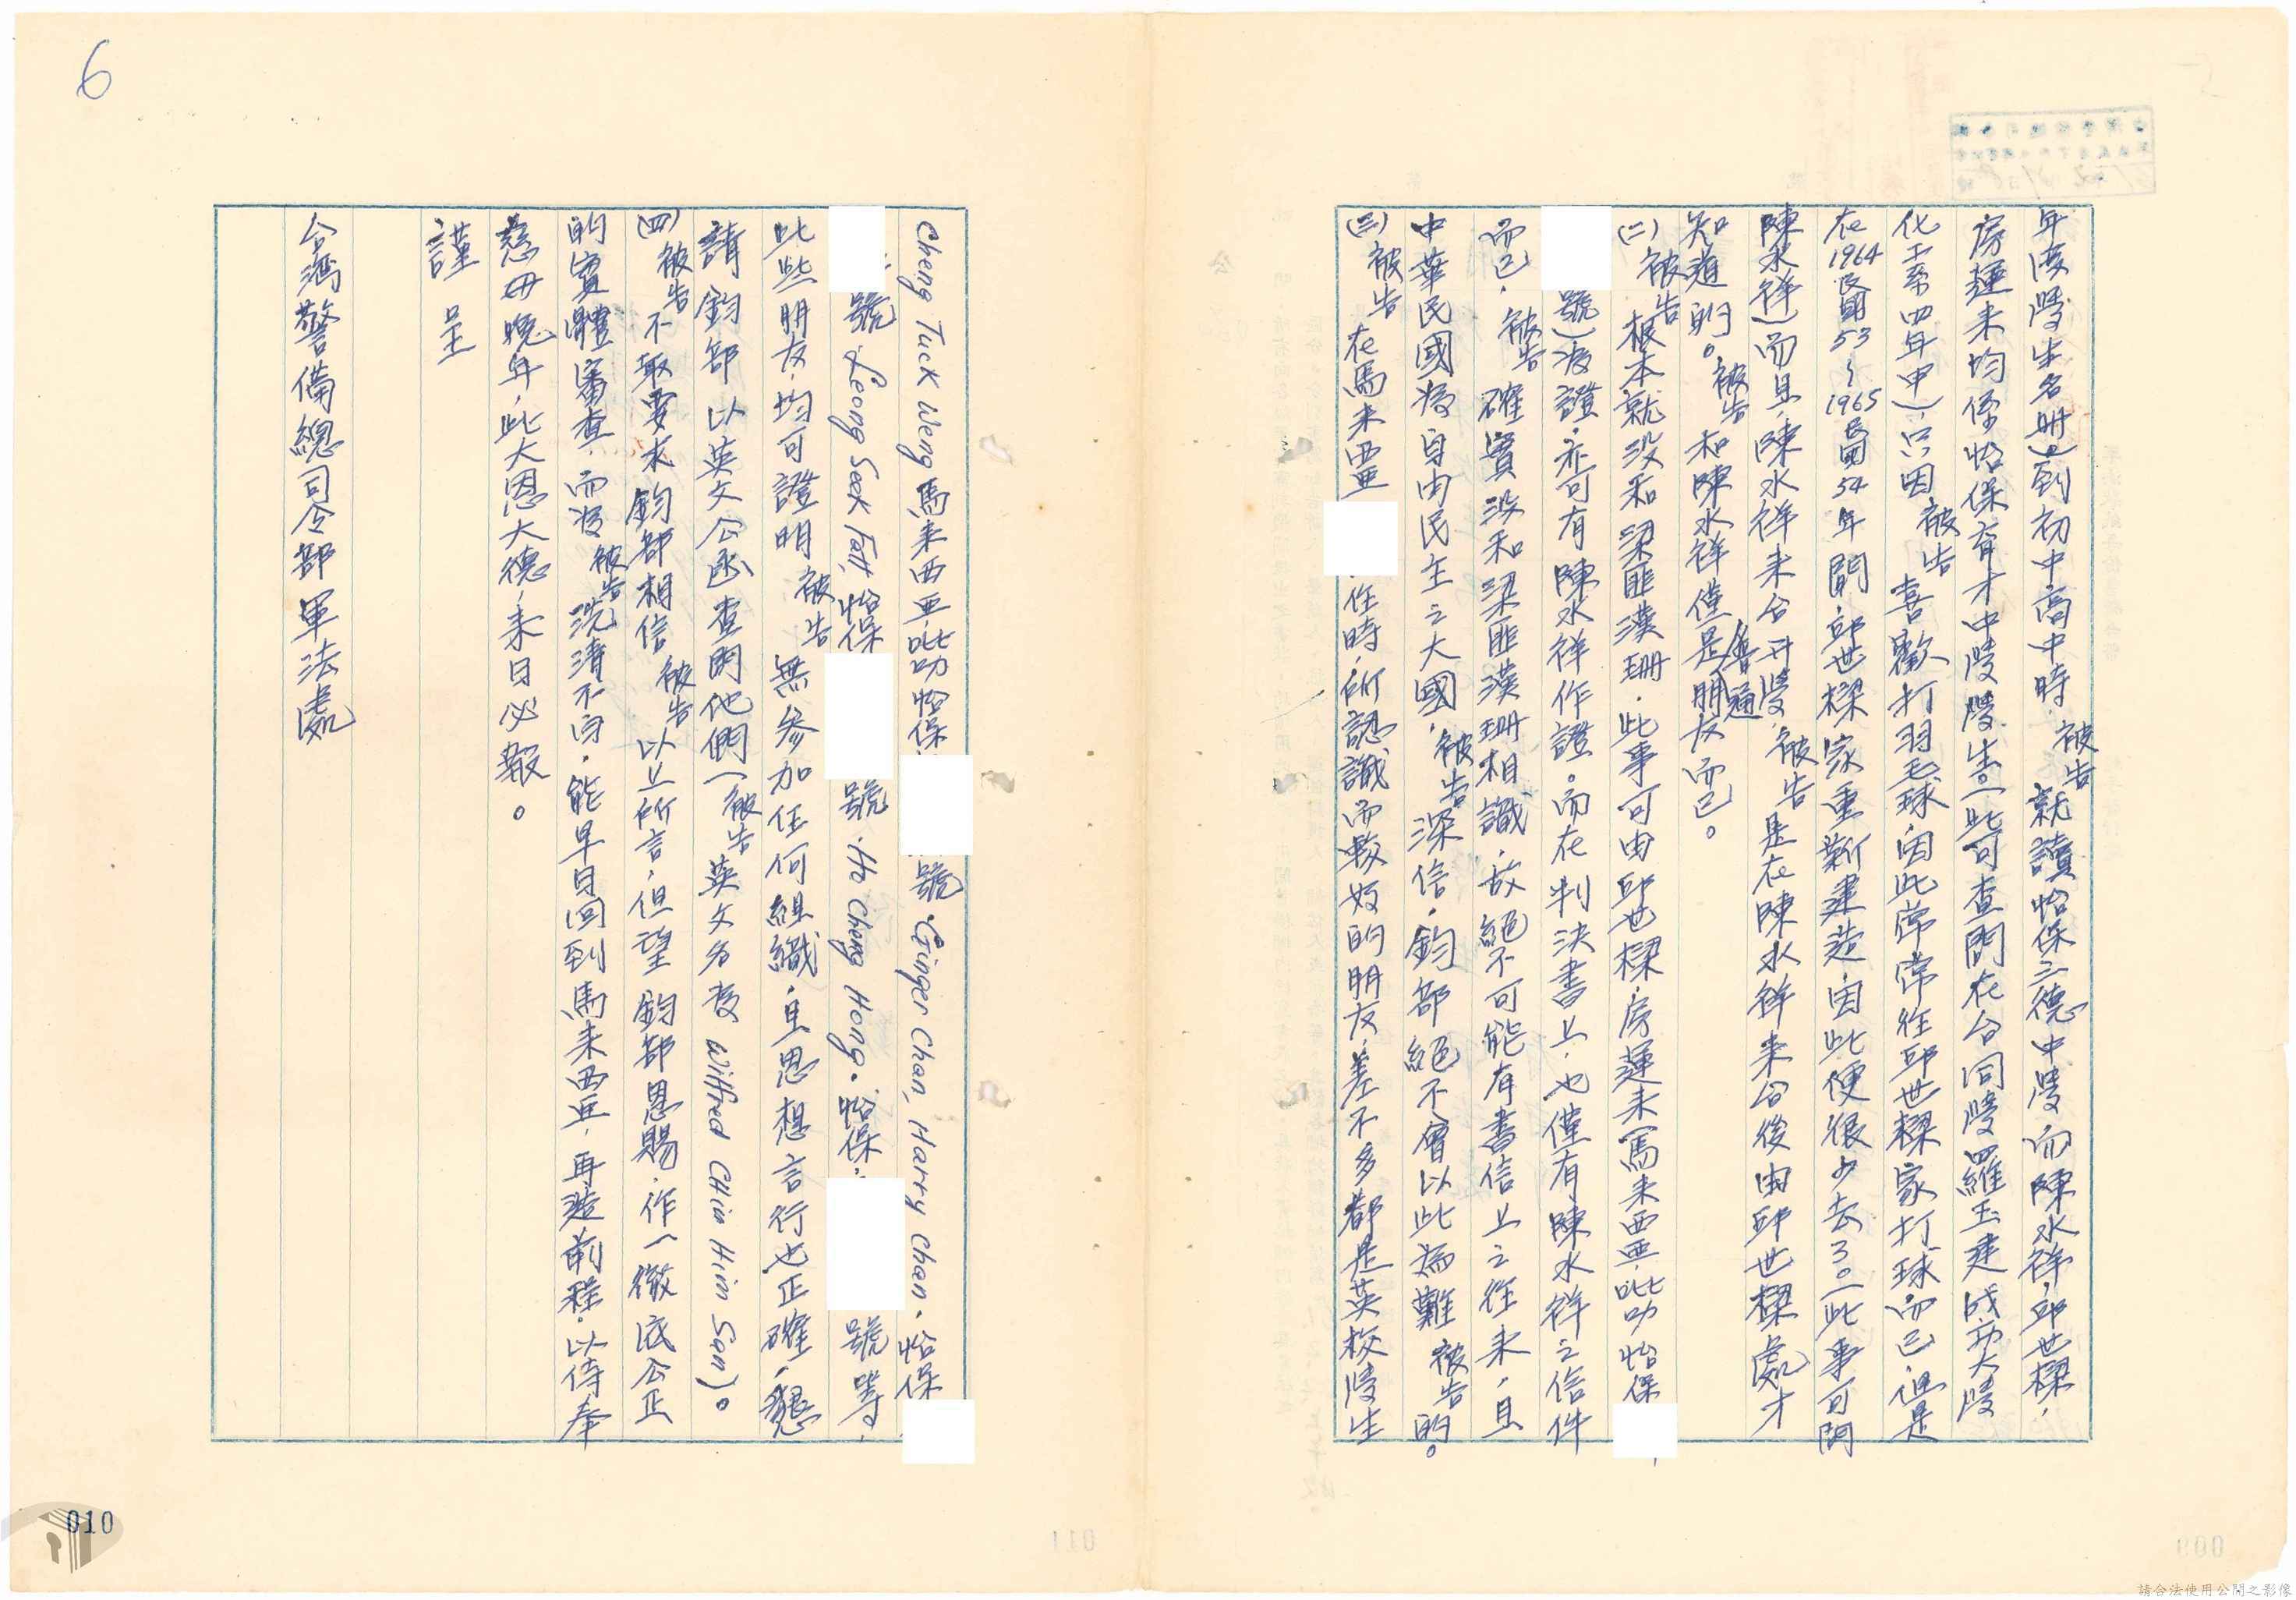 年度學生名冊)到初中高中時,被告就讀怡保三德中學,而陳水祥,邱世樑,
房運來均係怡保育才中學學生。(此可查問在台同學羅玉建成功大學
化工系四年中),只因被告喜歡打羽毛球,因此常常往邱世樑家打球而已,但是
在1964民國53~1965民國54年間,邱世樑家重新建造,因此便很少去了。(此事可問
陳水祥)而且,陳水祥來台升學,被告是在陳水祥來台後由邱世樑處才
知道的。被告和陳水祥僅是普通朋友而已。
(二)被告根本就沒和梁匪漢珊,此事可由邱世樑,房運來(馬來西亞吡叻怡保
號)為證,亦可有陳水祥作證。而在判決書上,也僅有陳水祥之信件
而已,被告確實沒和梁匪漢珊相識,故絕不可能有書信上之往來,且
中華民國為自由民主之大國,被告深信,鈞部絕不會以此為難被告的。
(三)被告在馬來亞 住時,所認識而較好的朋友,差不多都是英校學生
Cheng Tuck Weng 馬來西亞吡叻怡保 號.Ginger Chan, Harry Chan.怡保
號.Leong Seek Fatt,怡保 號.Ho Cheng Hong.怡保 號等,
此些朋友,均可證明被告無參加任何組織,且思想言行也正確,懇
請 鈞部以英文公函查問他們(被告英文名為Wilfred CHin Hin San)。
(四)被告不敢要求 鈞部相信被告以上所言,但望 鈞部恩賜,作一徹底公正
的實體審查,而將被告洗清不白,能早日回到馬來西亞,再造前程。以侍奉
慈母晚年,此大恩大德,來日必報。
謹呈
台灣警備總司令部軍法處
6
010
請合法使用公開之影像